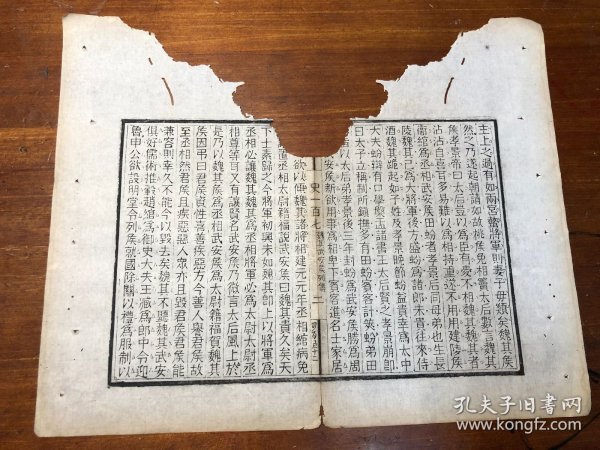 主上之過有如兩宮螫將軍則妻子毋類矣魏其侯
然之乃遂起朝請如故桃侯免相竇太后數言魏其
侯孝景帝曰太后豈以爲臣有愛不相魏其魏其者
沾沾自喜耳多易難以爲相持重遂不用用建陵侯
衛綰爲丞相武安侯田蚡者孝景后同母弟也生長
陵魏其已爲大將軍後方盛蚡爲諸郎未貴往來侍
酒魏其跪起如子姓及孝景晚節蚡益貴幸爲太中
大夫蚡辯有口學槃盂諸書王太后賢之孝景崩即
日太子立稱制所鎮撫多有田蚡賓客計筴蚡弟田
皆以太后弟孝景後三年封蚡爲武安侯勝爲周
武安侯新欲用事爲相卑下賓客進名士家居
史一百七
二
欲以傾魏其諸將相建元元年丞相綰病免
置丞相太尉籍福說武安侯曰魏其貴久矣天
下士素歸之今將軍初興未如魏其即上以將軍爲
丞相必讓魏其魏其爲丞相將軍必爲太尉太尉丞
相尊等耳又有讓賢名武安侯乃微言太后風上於
是乃以魏其侯爲丞相武安侯爲太尉籍福賀魏其
侯因弔曰君侯資性喜善疾惡方今善人譽君侯故
至丞相然君侯且疾惡惡人眾亦且毀君侯君侯能
兼容則幸久不能今以毀去矣魏其不聽魏其武安
俱好儒術推轂趙綰爲御史大夫王臧爲郎中令迎
魯申公欲設明堂令列侯就國除關以禮爲服制以
孔夫子旧书网
www.kongfz.com